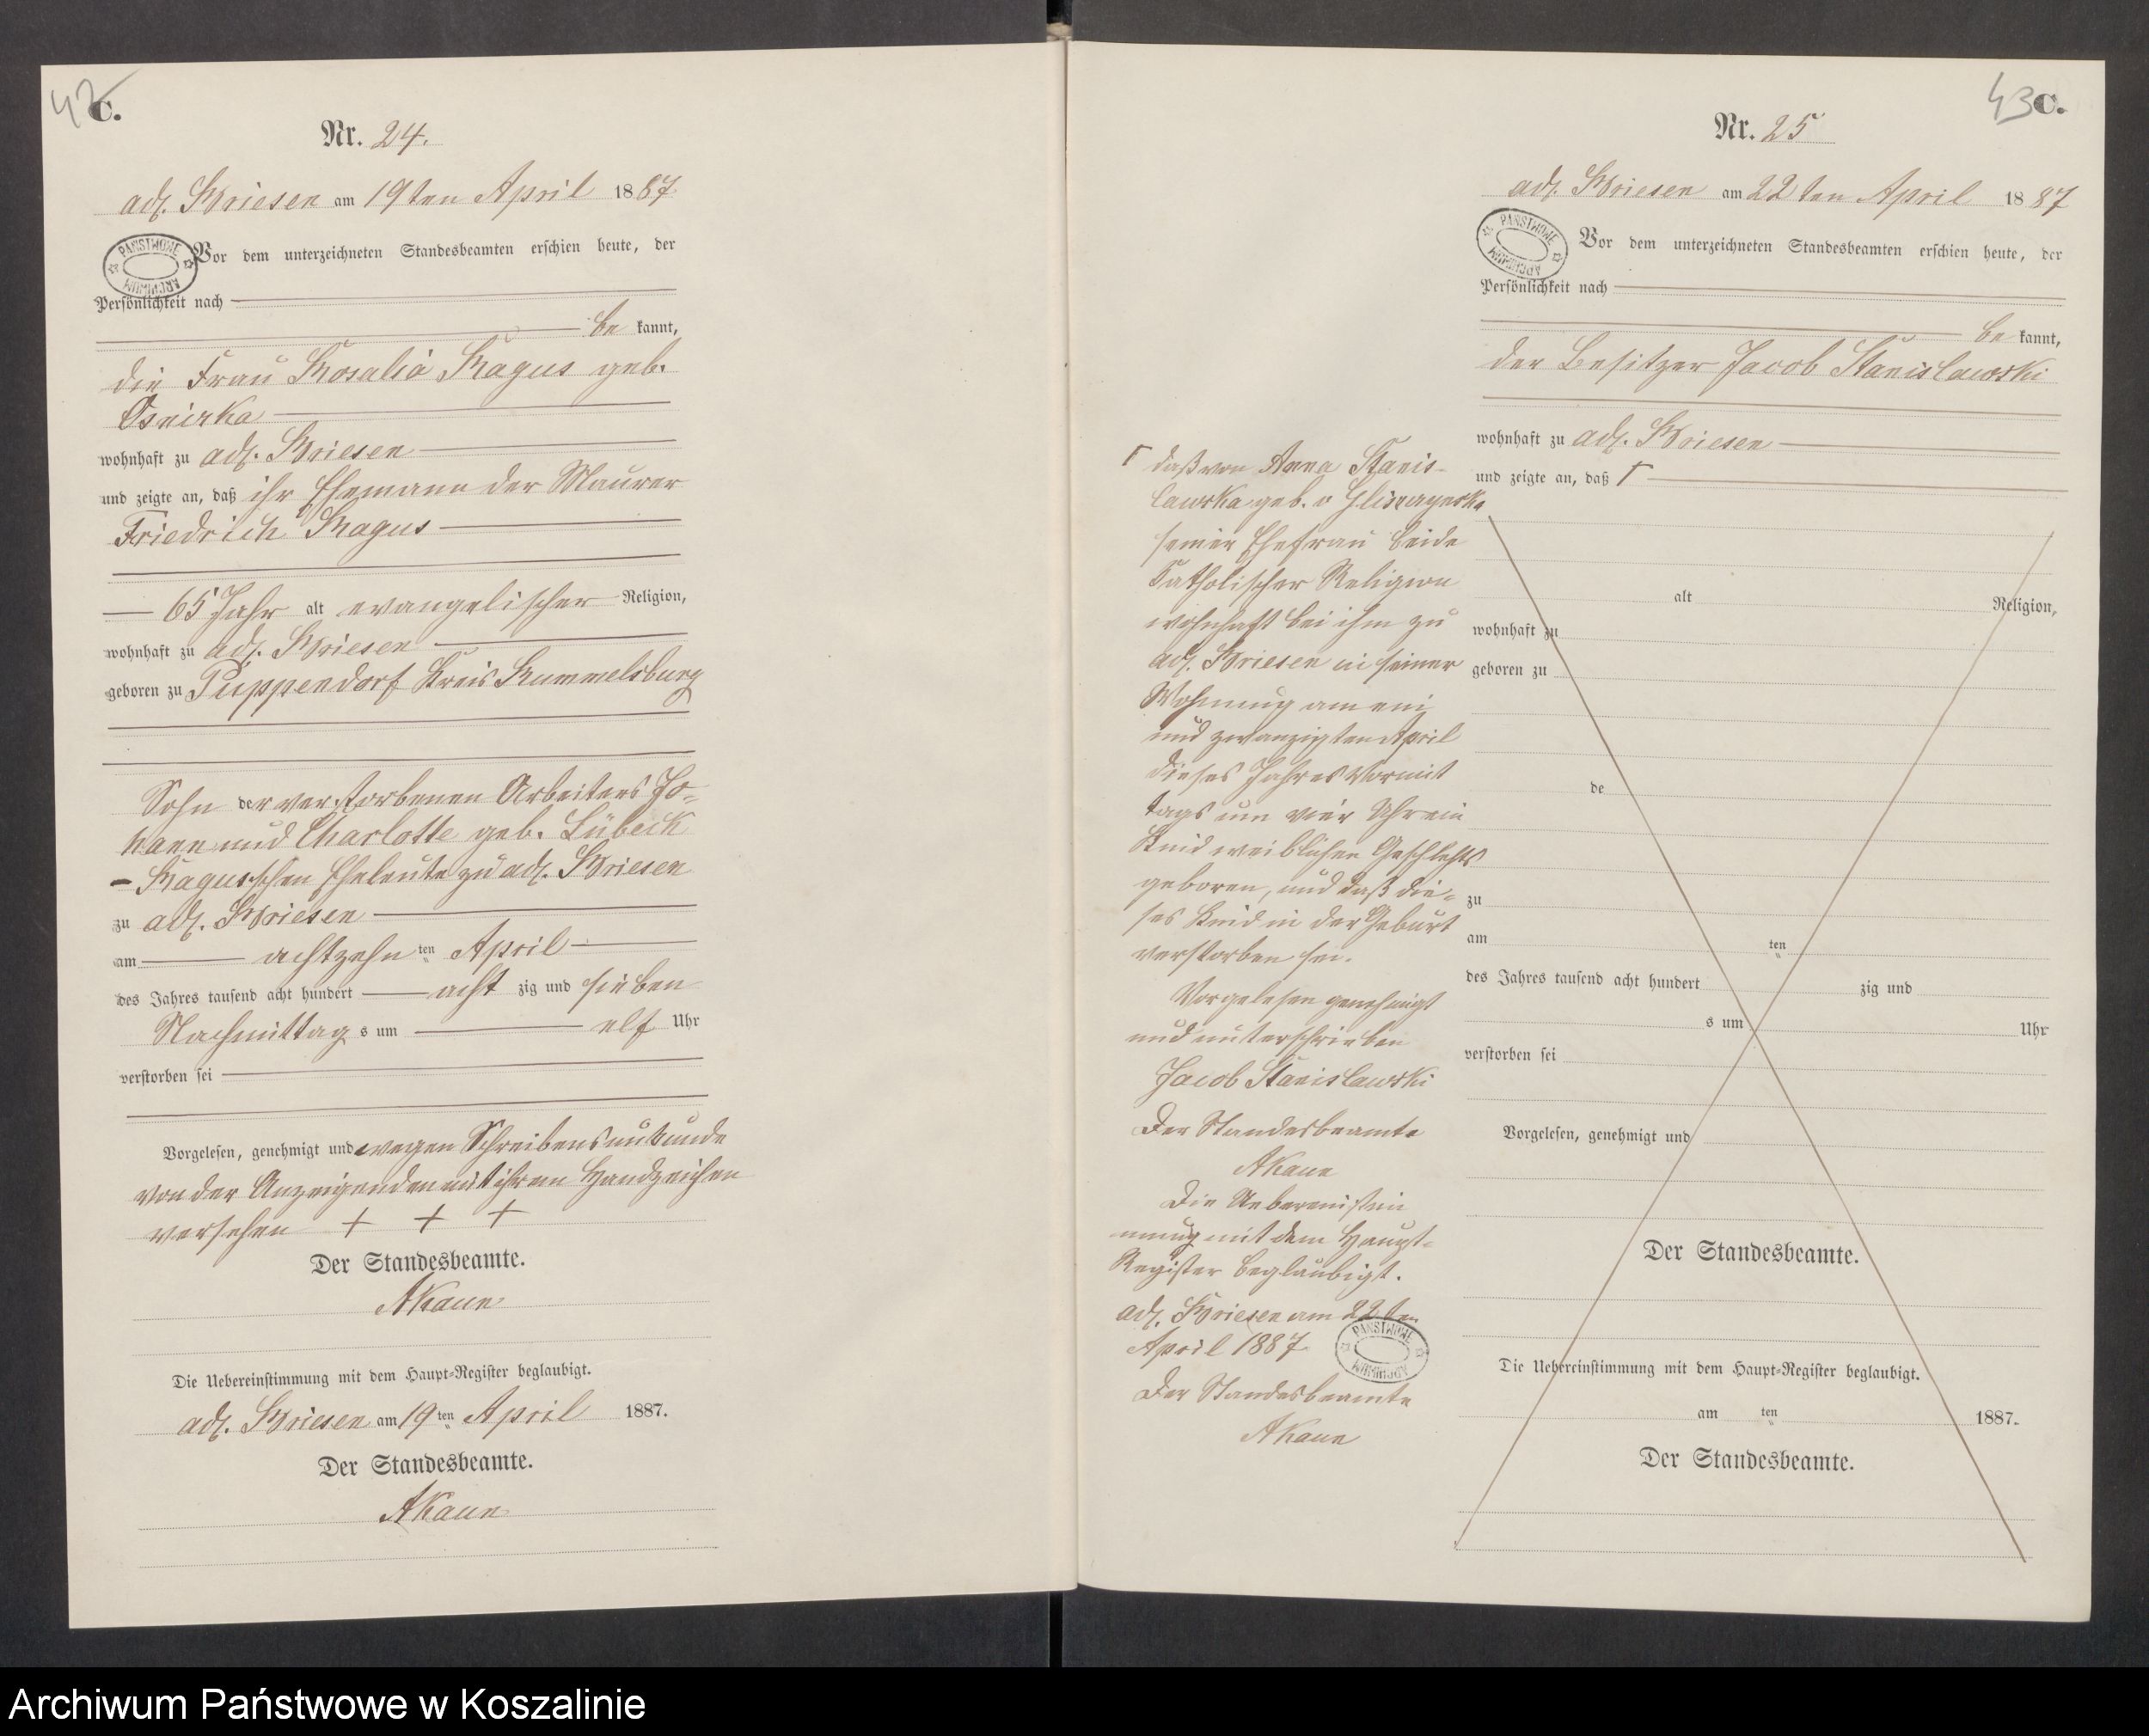 42
C.
Nr. 24.
adl. Briesen am 19ten April 1887
PAŃSTWOWE ARCHIWUM
Vor dem unterzeichneten Standesbeamten erschien heute, der
Persönlichkeit nach
be kannt,
die Frau Rosalia Ragus geb.
Osnirka
wohnhaft zu adl. Briesen
und zeigte an, daß ihr Ehemann der Maurer
Friedrich Ragus
65 Jahr alt evangelischer Religion,
wohnhaft zu adl. Briesen
geboren zu Puppendorf Kreis Rummelsburg
Sohn der verstorbenen Arbeiters Jo-
hann und Charlotte geb. Lübeck
Ragusschen Eheleute zu adl. Briesen
zu adl. Briesen
am achtzehn ten April
des Jahres tausend acht hundert acht zig und sieben
Nachmittag s um elf Uhr
verstorben sei
Vorgelesen, genehmigt und wegen Schreibensunkunde
von der Anzeigenden mit ihrem Handzeichen
versehen + + +
Der Standesbeamte.
AKaun
Die Uebereinstimmung mit dem Haupt-Register beglaubigt.
adl. Briesen am 19 ten April 1887.
Der Standesbeamte.
AKaun
43
C.
Nr. 25
adl. Briesen am 22 ten April 1887
PAŃSTWOWE ARCHIWUM
Vor dem unterzeichneten Standesbeamten erschien heute, der
Persönlichkeit nach
be kannt,
der Besitzer Jacob Stanislawski
wohnhaft zu adl. Briesen
und zeigte an, daß Γ
alt Religion,
wohnhaft zu
geboren zu
de
zu
am ten
des Jahres tausend acht hundert zig und
s um Uhr
verstorben sei
Vorgelesen, genehmigt und
Der Standesbeamte.
Die Uebereinstimmung mit dem Haupt-Register beglaubigt.
am ten 1887.
Der Standesbeamte.
Γ daß von Anna Stanis-
lawska geb. v
seiner Ehefrau beide
katholischer Religion
wohnhaft bei ihm zu
adl. Briesen in seiner
Wohnung am ein
und zwanzigten April
dieses Jahres Vormit
tags um vier Uhr ein
Kind weiblichen Geschlechts
geboren, und daß die-
ses Kind in der Geburt
verstorben sei.
Vorgelesen genehmigt
und unterschrieben
Jacob Stanislawski
Der Standesbeamte
AKaun
Die Uebereinstim
mung mit dem Haupt-
Register beglaubigt.
adl. Briesen am 22 ten
April 1887
PAŃSTWOWE ARCHIWUM
Der Standesbeamte
AKaun
Archiwum Państwowe w Koszalinie